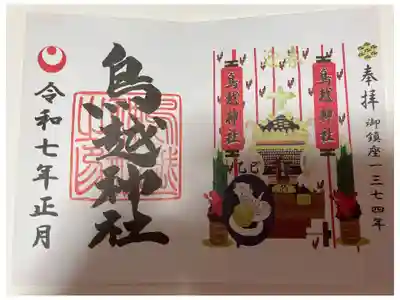 奉拝
御鎮座一三七四年
鳥越神社
鳥越神社
乙巳
鳥越神社
令和七年正月